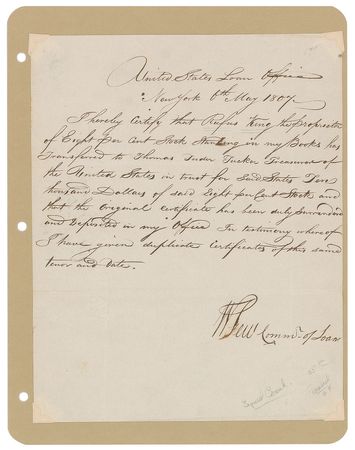 United States Loan Office
New York 6th May 1807
I hereby Certify that Rufus King the Proprietor
of Eight per Cent Stock Standing on my Books has
transferred to Thomas Tudor Tucker Treasurer of
the United States in trust for said States
thousand Dollars of said Eight per Cent Stock and
that the Original Certificate has been duly Surrendered
and Deposited in my Office In testimony whereof
I have given duplicate Certificates of this same
tenor and date.
Commr. of Loans